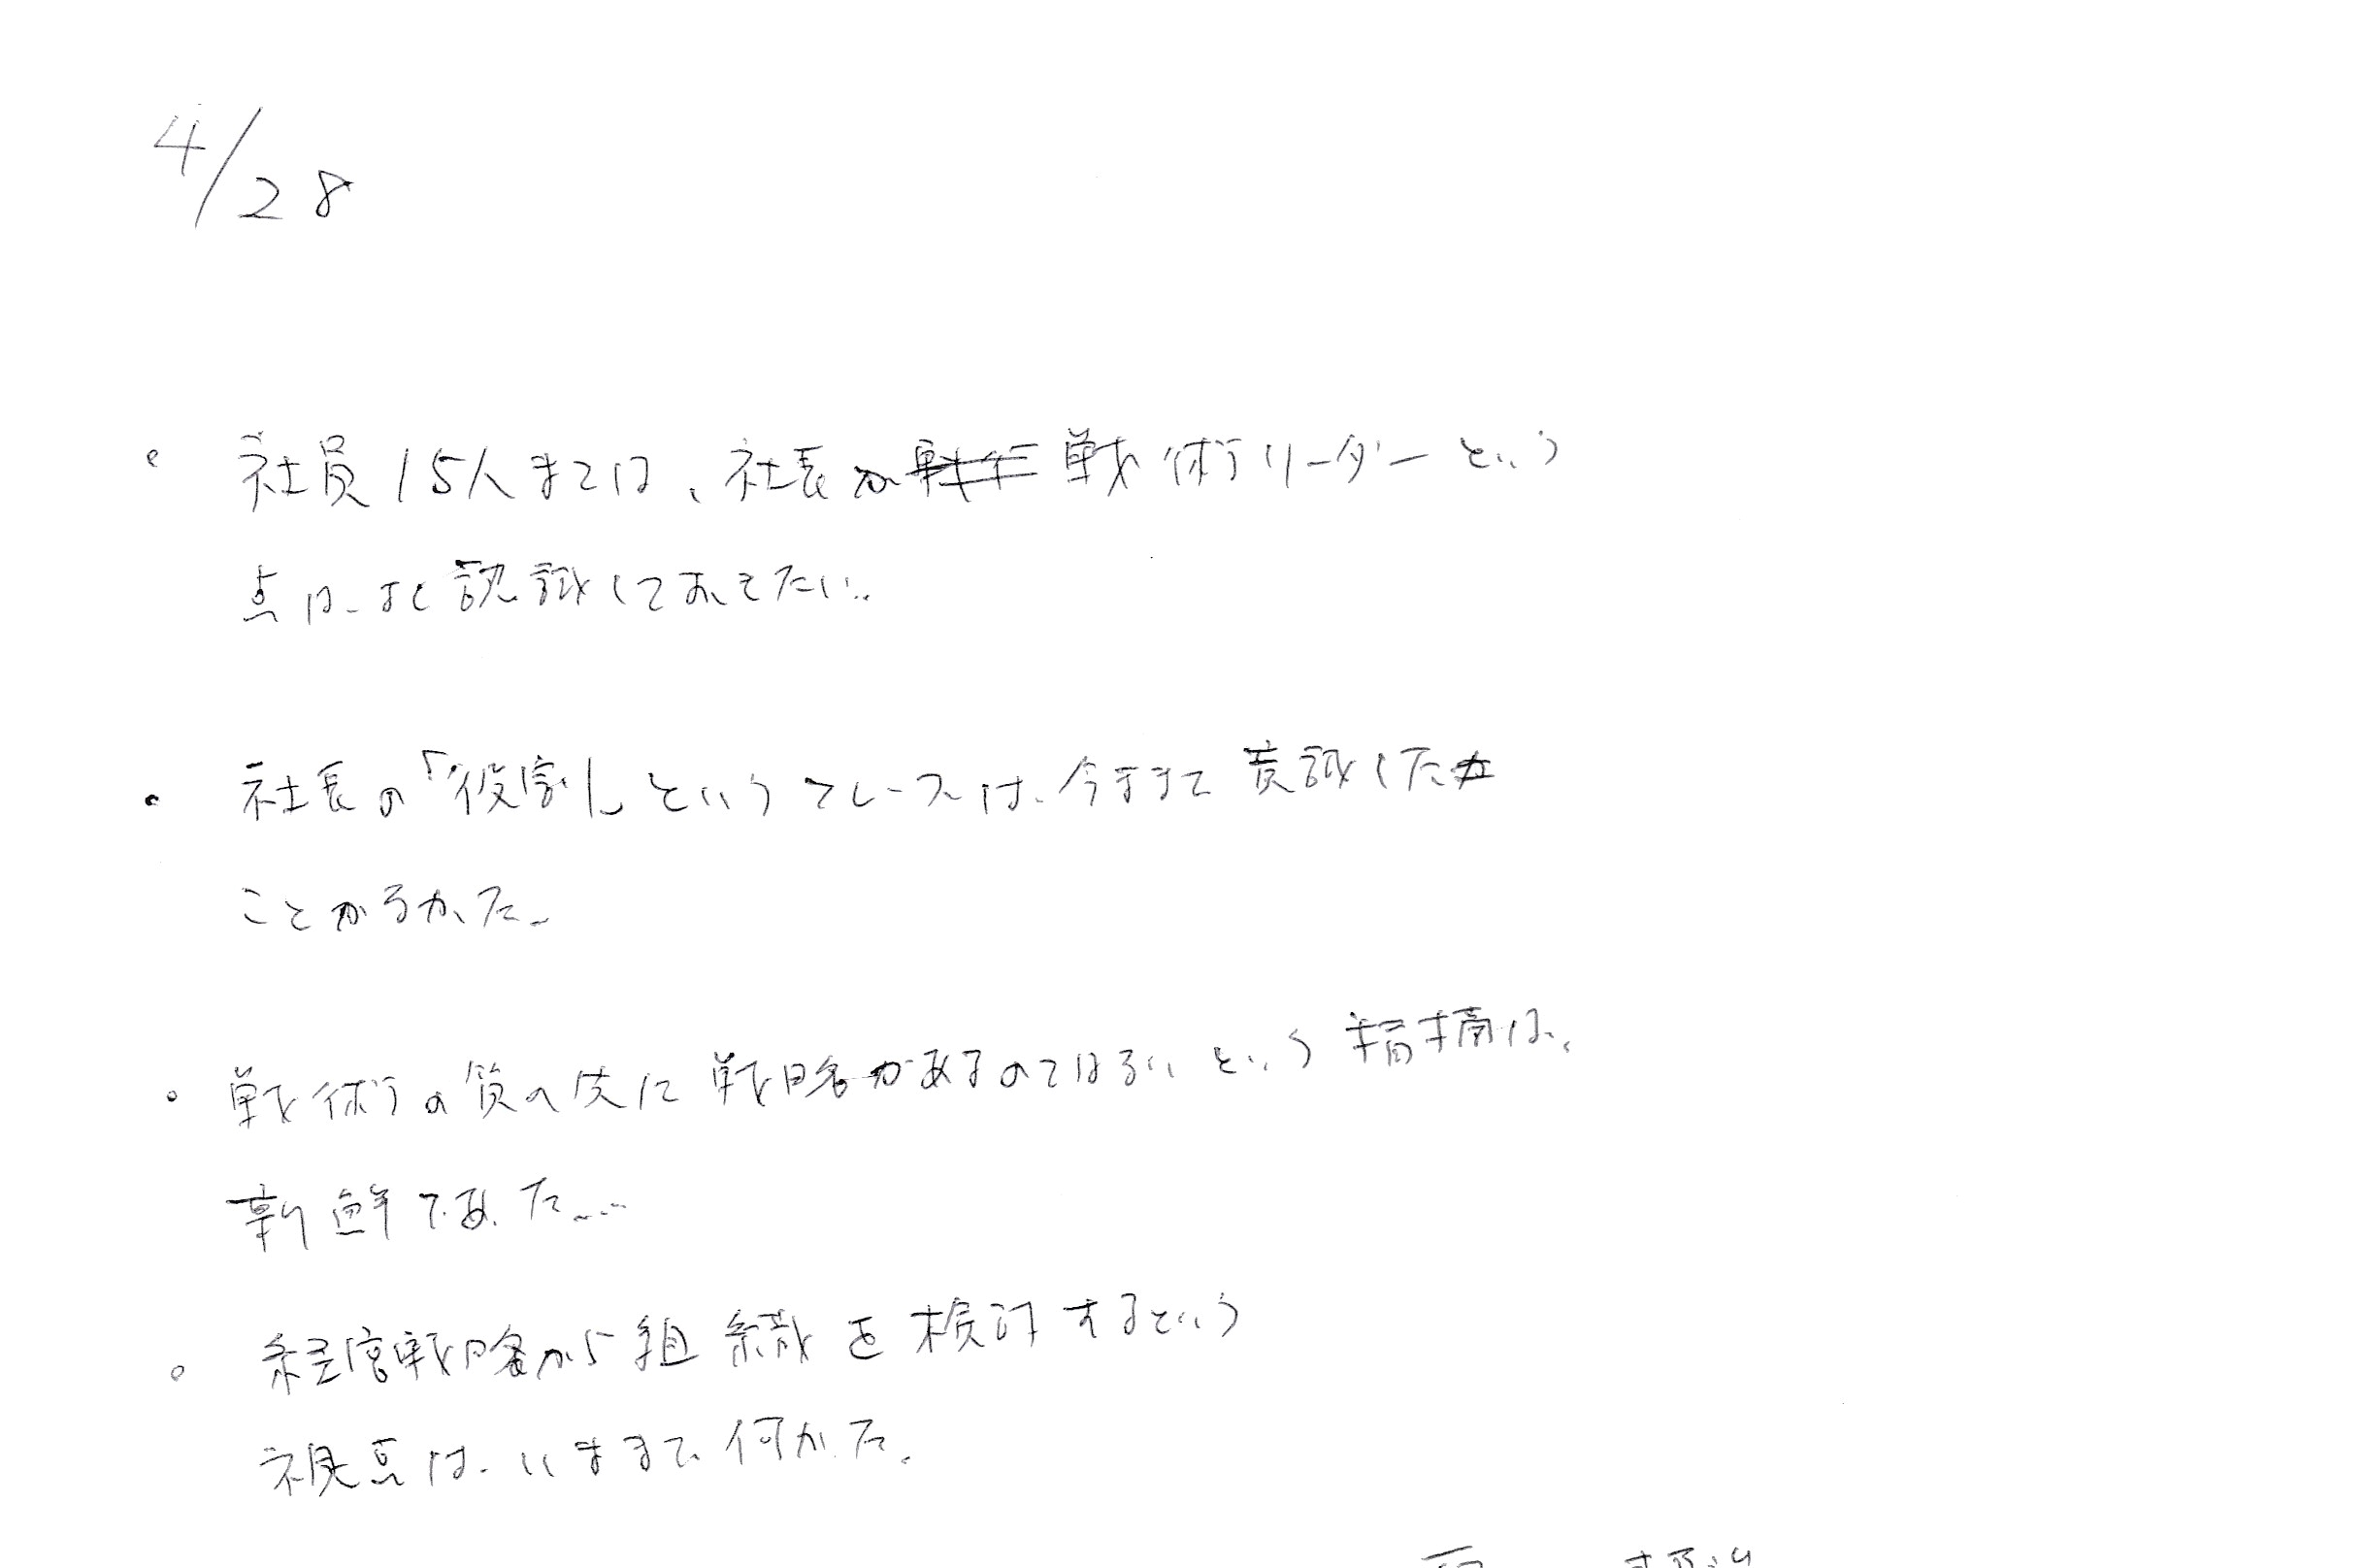 4/28
・ 社員15人までは、社長が戦術リーダーという
点は、よく認識しておきたい。
・ 社長の「役割」というフレーズは、今まで意識した
ことがなかった。
・ 戦術の質の次に戦略があるのではないという指摘は、
新鮮であった…
・ 経営戦略から組織を検討するという
視点は、いままで何かった。